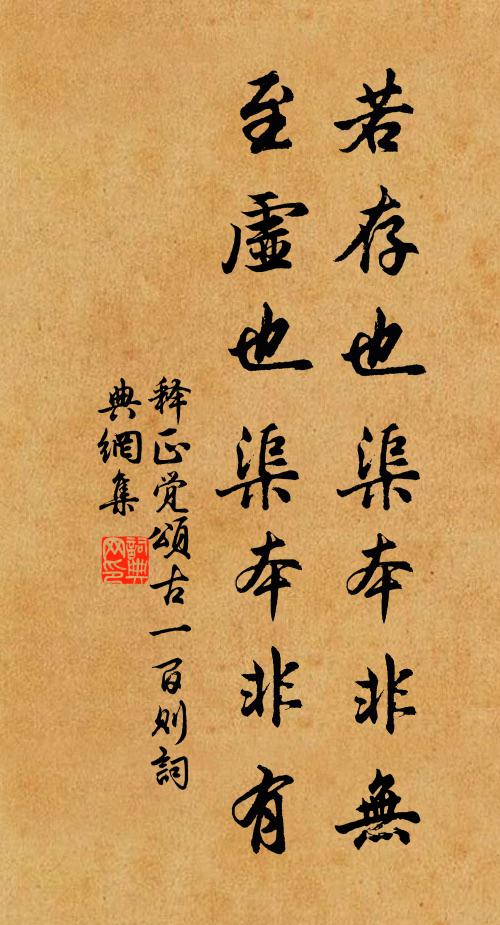 若存也渠本非無
至虛也渠本非有
释正觉頌古一百则詞
典網集
詞典
网印